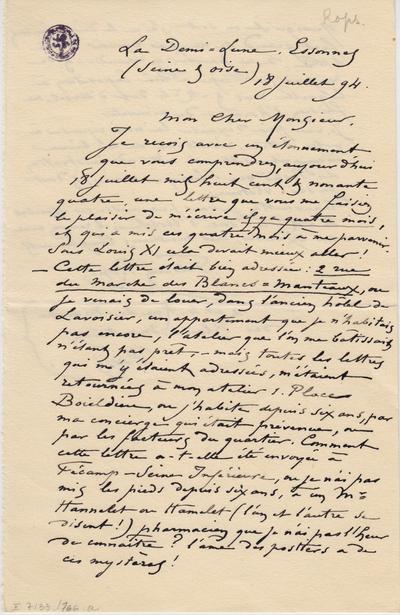 Rops.
La Demi-Lune. Essonnes
(Seine & oise) 18 juillet 94.
Mon Cher Monsieur.
Je reçois avec un étonnement
que vous comprendrez, aujourd'hui
18 juillet mil huit cent & nonante
quatre, une lettre que vous me faisiez
le plaisir de m'écrire il y a quatre mois,
et qui a mis ces quatre mois à me parvenir.
Sous Louis XI cela devait mieux aller!
— Cette lettre était bien adressée: 2 rue
du Marché des Blancs-Manteaux, où
je venais de louer, dans l'ancien hôtel de
Lavoisier, un appartement que je n'habitais
pas encore, l'atelier que l'on me batissait
n'étant pas prêt, — mais toutes les lettres
qui m'y étaient adressées, m'étaient
retournées à mon atelier 1. Place
Boieldieu, où j'habite depuis six ans, par
ma concierge qui était prévenue, ou
par les facteurs du quartier. Comment
cette lettre a-t-elle été envoyée à
Fécamp-Seine Inférieure, où je n'ai pas
mis les pieds depuis six ans, à un Mr
Hannelet ou Hamelet (l'un et l'autre se
disent!) pharmacien que je n'ai pas l'heur
de connaître? l'âme des postiers a de
ces mystères!